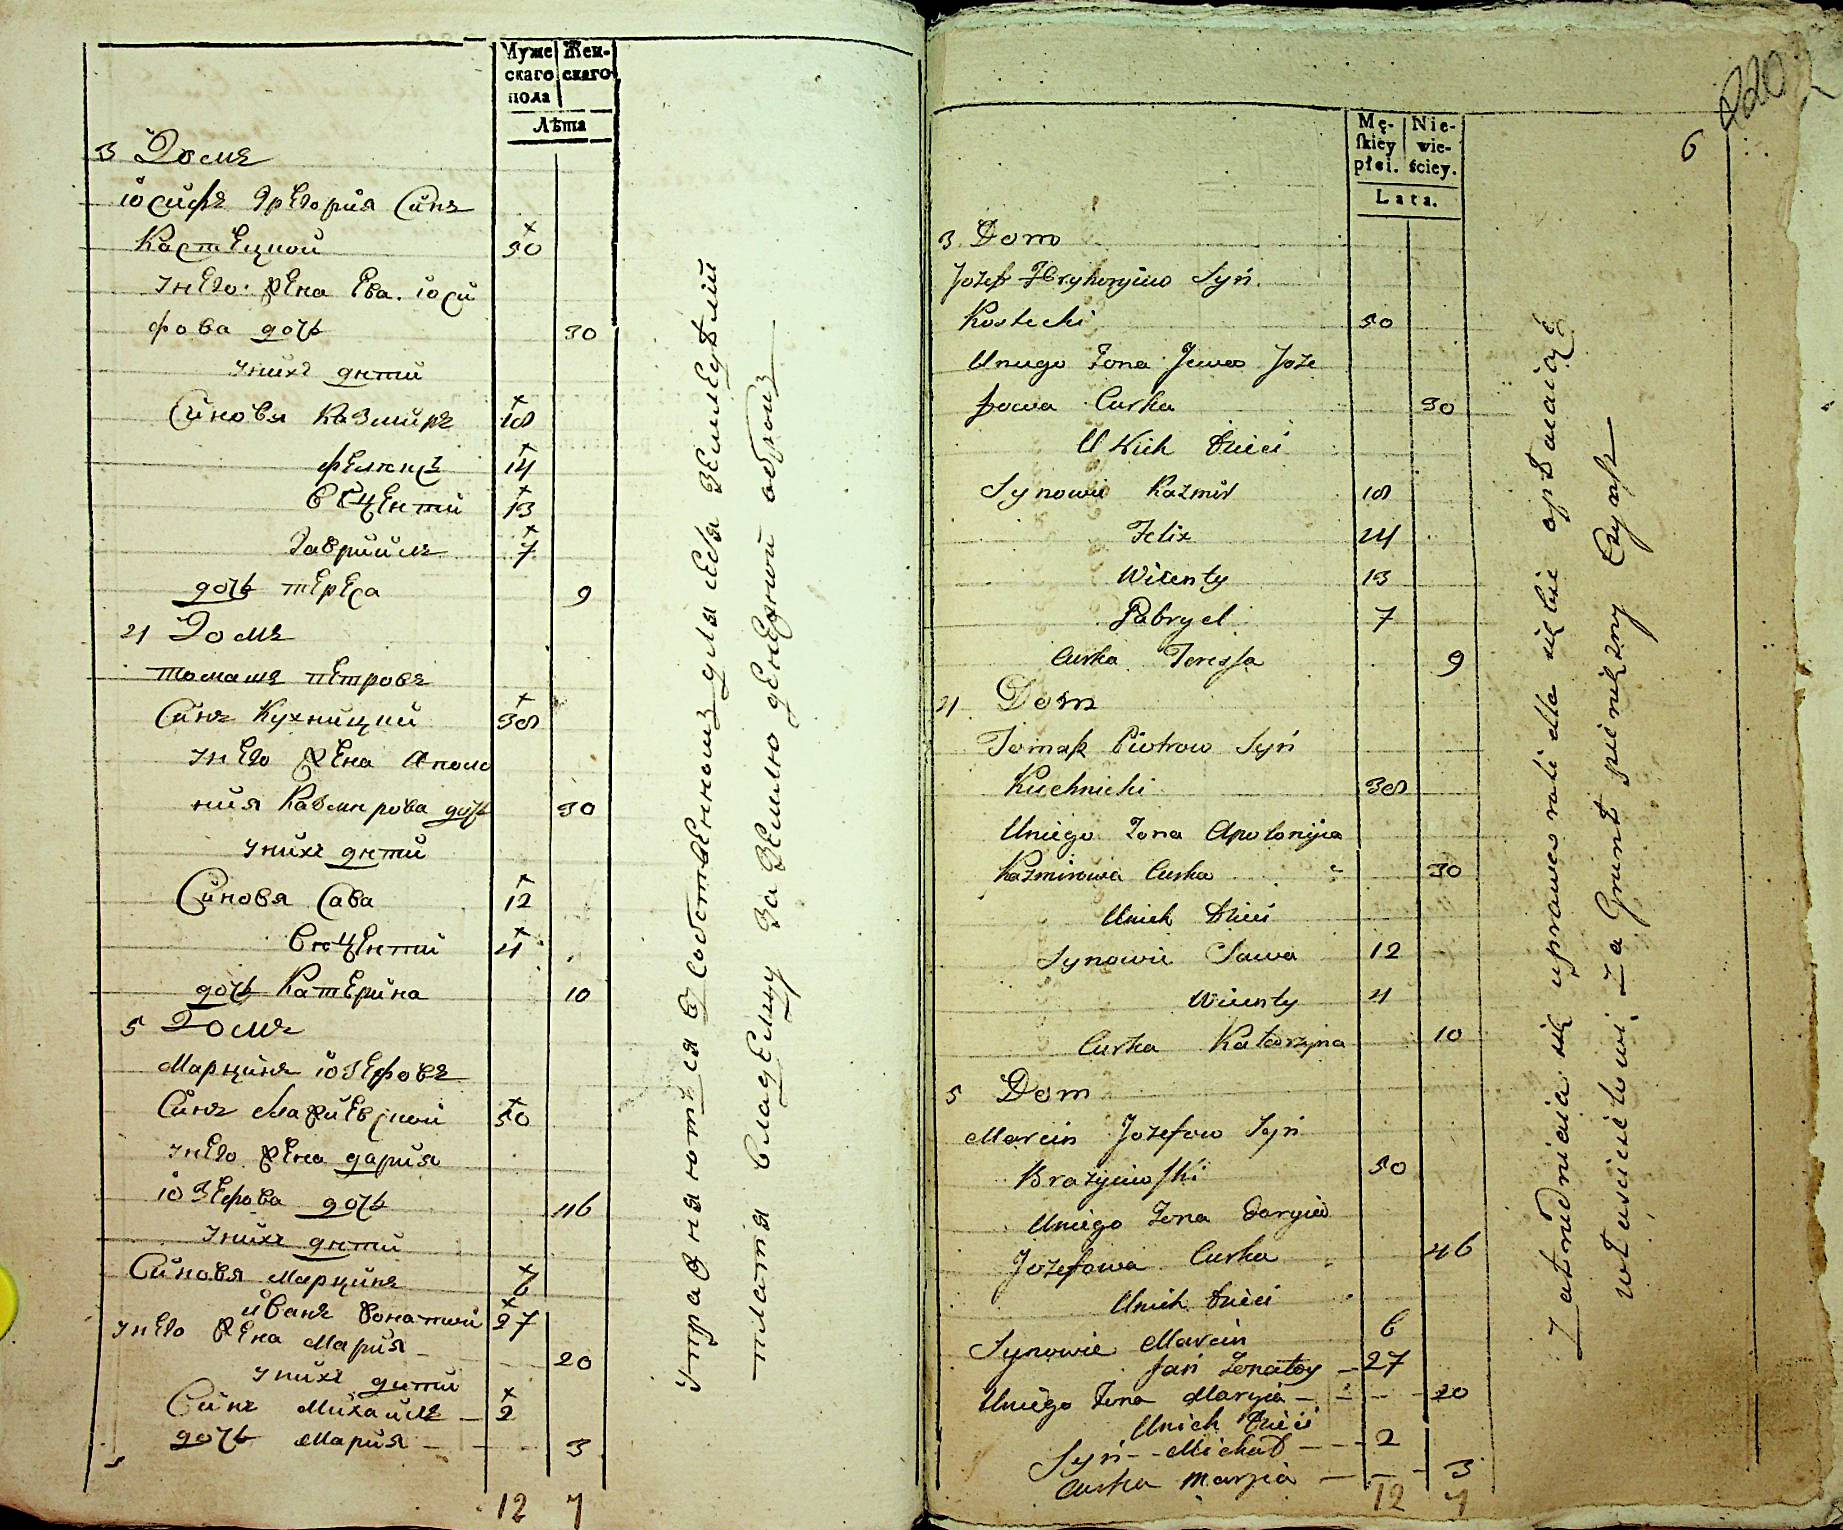 Муже
скаго
пола
Жен-
скаго
Лѣта
3 Домъ
іосифъ Грегория Синъ
Костецкой 50
Унего Жена Ева іоси
фова дочь 30
Унихъ дѣти
Синовя Казмиръ 18
Феликсъ 14
Вѣцентий 13
Гаврийлъ 7
дочь Тереса 9
4 Домъ
Томашъ Петровъ
Синъ Кухницкий 38
Унего Жена Аполо
ния Казмирова дочь 30
Унихъ дѣти
Синовя Сава 12
Вѣцентий 4
дочь Катерина 10
5 Домъ
Марцинъ іозефовъ
Синъ 50
Унего Жена Дария
іозефова дочь 46
Унихъ дѣти
Синовя Марцинъ 6
йванъ Женатий 27
Унего Жена Мария 20
Унихъ дѣти
Синъ Михайлъ 2
дочь Мария 3
12 7
Упражняются в Собственном для себя Земледелии
платя Владелцу За Землю денежний оброк
6
Mę-
skiey
płci.
Nie-
wie-
ściey.
Lata.
3 Dom
Jozef Hryhoryiew Syń
Kostecki 50
Uniego Zona Jewa Joze
fowa Curka 30
U Nich Dzieci
Synowie Kazmir 18
Felix 14
Wicenty 13
Gabryel 7
Curka Teressa 9
4 Dom
Tomasz Piotrow Syń
Kuchnicki 38
Uniego Zona Apolonija
Kazmirowa Curka 30
Unich Dzieci
Synowie Sawa 12
Wicenty 4
Curka Katarzyna 10
5 Dom
Marcin Jozefow Syń
50
Uniego Zona Daryia
Jozefowa Curka 46
Unich Dzieci
Synowie Marcin 6
Jań Zonaty 27
Uniego Zona Maryia 20
Unich Dzieci
Syń Michał 2
Curka Maryia 3
12 7
Zatrudniaią się uprawą roli dla siebie opłacaiąc
właścicielowi za Grunt pieniężny Czynsz